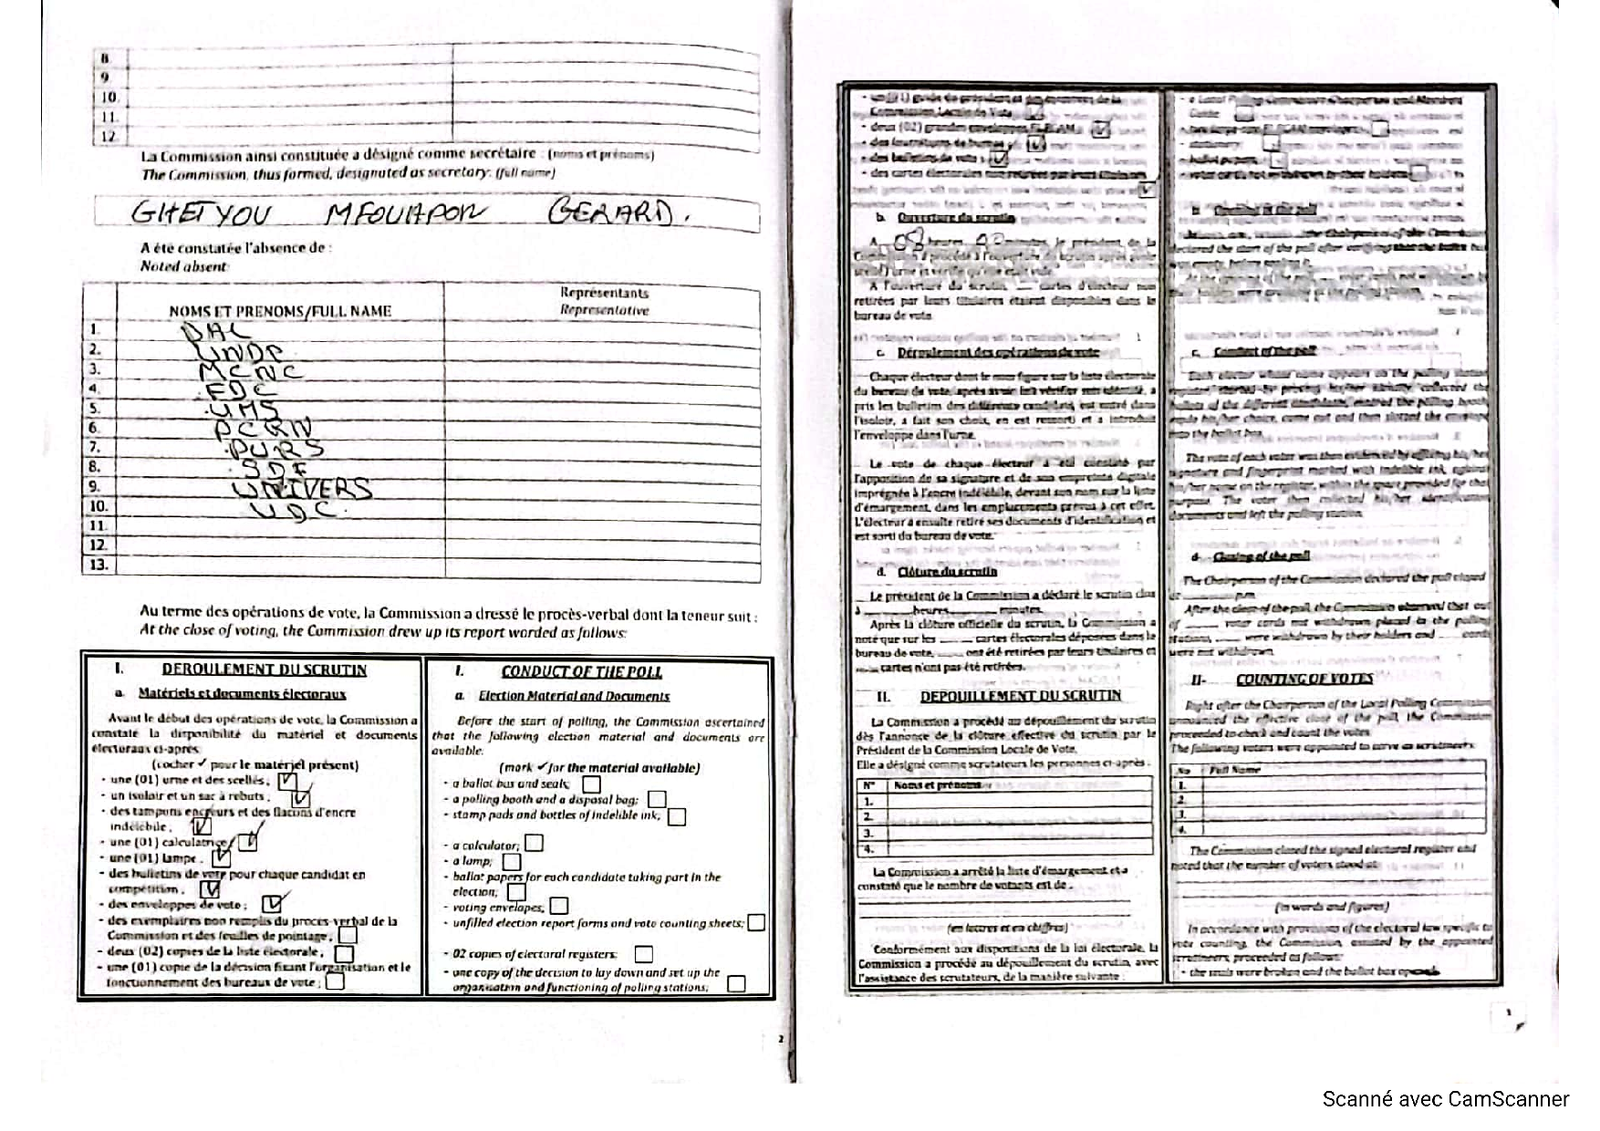 8
9
10.
11.
12.
La Commission ainsi constituée a désigné comme secrétaire : (noms et prénoms)
The Commission, thus formed, designated as secretary: (full name)
GHETYOU MFOUAPON GERARD.
A été constatée l'absence de :
Noted absent:
NOMS ET PRENOMS/FULL NAME
Représentants
Representative
1. DAC
2. UNDP
3. MCNC
4. FDC
5. UMS
6. PCRN
7. PURS
8. SDF
9. UNIVERS
10. UDC.
11.
12.
13.
Au terme des opérations de vote, la Commission a dressé le procès-verbal dont la teneur suit :
At the close of voting, the Commission drew up its report worded as follows:
I. DEROULEMENT DU SCRUTIN
a. Matériels et documents électoraux
Avant le début des opérations de vote, la Commission a
constaté la disponibilité du matériel et documents
électoraux ci-après
(cocher ✓ pour le matériel présent)
- une (01) urne et des scellés ; ✓
- un isoloir et un sac à rebuts ; ✓
- des tampons encreurs et des flacons d'encre
indélébile ; ✓
- une (01) calculatrice ; ✓
- une (01) lampe . ✓
- des bulletins de vote pour chaque candidat en
compétition . ✓
- des enveloppes de vote ; ✓
- des exemplaires non remplis du procès-verbal de la
Commission et des feuilles de pointage ;
- deux (02) copies de la liste électorale ;
- une (01) copie de la décision fixant l'organisation et le
fonctionnement des bureaux de vote ;
I. CONDUCT OF THE POLL
a. Election Material and Documents
Before the start of polling, the Commission ascertained
that the following election material and documents are
available:
(mark ✓ for the material available)
- a ballot box and seals;
- a polling booth and a disposal bag;
- stamp pads and bottles of indelible ink;
- a calculator;
- a lamp;
- ballot papers for each candidate taking part in the
election;
- voting envelopes;
- unfilled election report forms and vote counting sheets;
- 02 copies of electoral registers;
- one copy of the decision to lay down and set up the
organisation and functioning of polling stations;
2
Commission Locale de Vote
- deux (02) grandes enveloppes ELECAM ✓
- des fournitures de bureau ✓
- des bulletins de vote ✓
- des cartes électorales non retirées par leurs titulaires ✓
b. Ouverture du scrutin
A 08 heures 00 minutes, le président de la
Commission a procédé à l'ouverture du scrutin après avoir
vérifié qu'elle était vide.
A l'ouverture du scrutin, cartes d'électeur non
retirées par leurs titulaires étaient disponibles dans le
bureau de vote.
c. Déroulement des opérations de vote
Chaque électeur dont le nom figure sur la liste électorale
du bureau de vote, après avoir fait vérifier son identité, a
pris les bulletins des différents candidats, est entré dans
l'isoloir, a fait son choix, en est ressorti et a introduit
l'enveloppe dans l'urne.
Le vote de chaque électeur a été constaté par
l'apposition de sa signature et de son empreinte digitale
imprégnée à l'encre indélébile, devant son nom sur la liste
d'émargement, dans les emplacements prévus à cet effet.
L'électeur a ensuite retiré ses documents d'identification et
est sorti du bureau de vote.
d. Clôture du scrutin
Le président de la Commission a déclaré le scrutin clos
à heures minutes.
Après la clôture officielle du scrutin, la Commission a
noté que sur les cartes électorales déposées dans le
bureau de vote, ont été retirées par leurs titulaires et
cartes n'ont pas été retirées.
II. DEPOUILLEMENT DU SCRUTIN
La Commission a procédé au dépouillement du scrutin
dès l'annonce de la clôture effective du scrutin par le
Président de la Commission Locale de Vote.
Elle a désigné comme scrutateurs les personnes ci-après :
N° Noms et prénoms
1.
2.
3.
4.
La Commission a arrêté la liste d'émargement et a
constaté que le nombre de votants est de :
(en lettres et en chiffres)
Conformément aux dispositions de la loi électorale, la
Commission a procédé au dépouillement du scrutin, avec
l'assistance des scrutateurs, de la manière suivante :
Guide
- stationery
- ballot papers
declared the start of the poll after certifying that the ballot box
was empty, before sealing it.
c. Conduct of the poll
Each elector whose name appears on the polling station
made his/her choice, came out and then slotted the envelope
into the ballot box.
The vote of each voter was then evidenced by affixing his/her
signature and fingerprint marked with indelible ink, against
his/her name on the register, within the space provided for that
purpose. The voter then collected his/her identification
documents and left the polling station.
d. Closing of the poll
The Chairperson of the Commission declared the poll closed
at p.m.
After the close of the poll, the Commission observed that out
of voter cards not withdrawn placed in the polling
stations, were withdrawn by their holders and cards
were not withdrawn.
II- COUNTING OF VOTES
Right after the Chairperson of the Local Polling Commission
announced the effective close of the poll, the Commission
proceeded to check and count the votes.
The following voters were appointed to serve as scrutineers
No Full Name
1.
2.
3.
4.
The Commission closed the signed electoral register and
noted that the number of voters stood at:
(in words and figures)
In accordance with provisions of the electoral law specific to
vote counting, the Commission, assisted by the appointed
scrutineers, proceeded as follows:
- the seals were broken and the ballot box opened,
3
Scanné avec CamScanner